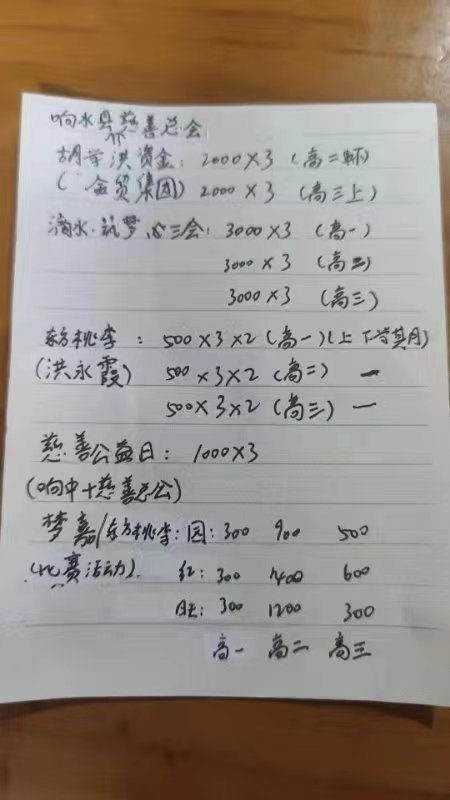 响水县慈善总会
胡学洪资金: 2000×3 (高二)
(金贸集团) 2000×3 (高三上)
滴水·筑梦 三会: 3000×3 (高一)
3000×3 (高二)
3000×3 (高三)
东方桃李: 500×3×2 (高一)(上下学期)
(洪永霞) 500×3×2 (高二) 一
500×3×2 (高三) 一
慈善公益日: 1000×3
(响中+慈善总公)
梦嘉/东方桃李: 园: 300 900 500
(比赛活动). 红: 300 400 600
旺: 300 1200 300
高一 高二 高三